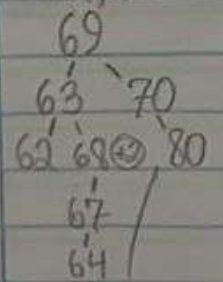 69
63 70
62 68 +2 80
67
64